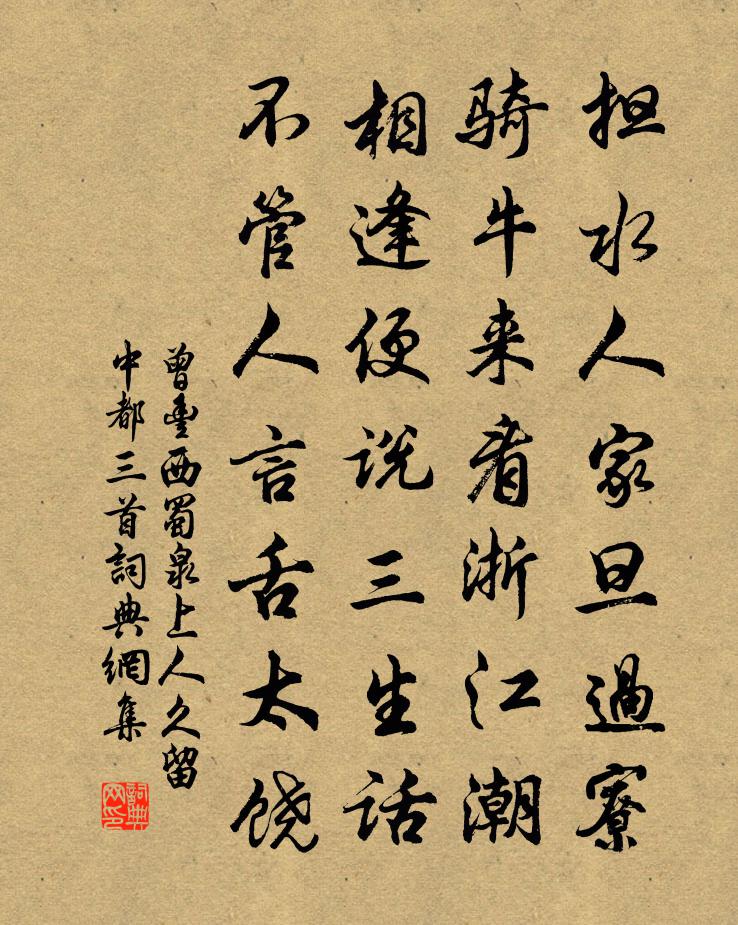 担水人家旦過寮
骑牛来看浙江潮
相逢便说三生话
不管人言舌太饶
曾豊西蜀泉上人久留
中都三首詞典網集
詞典
网印